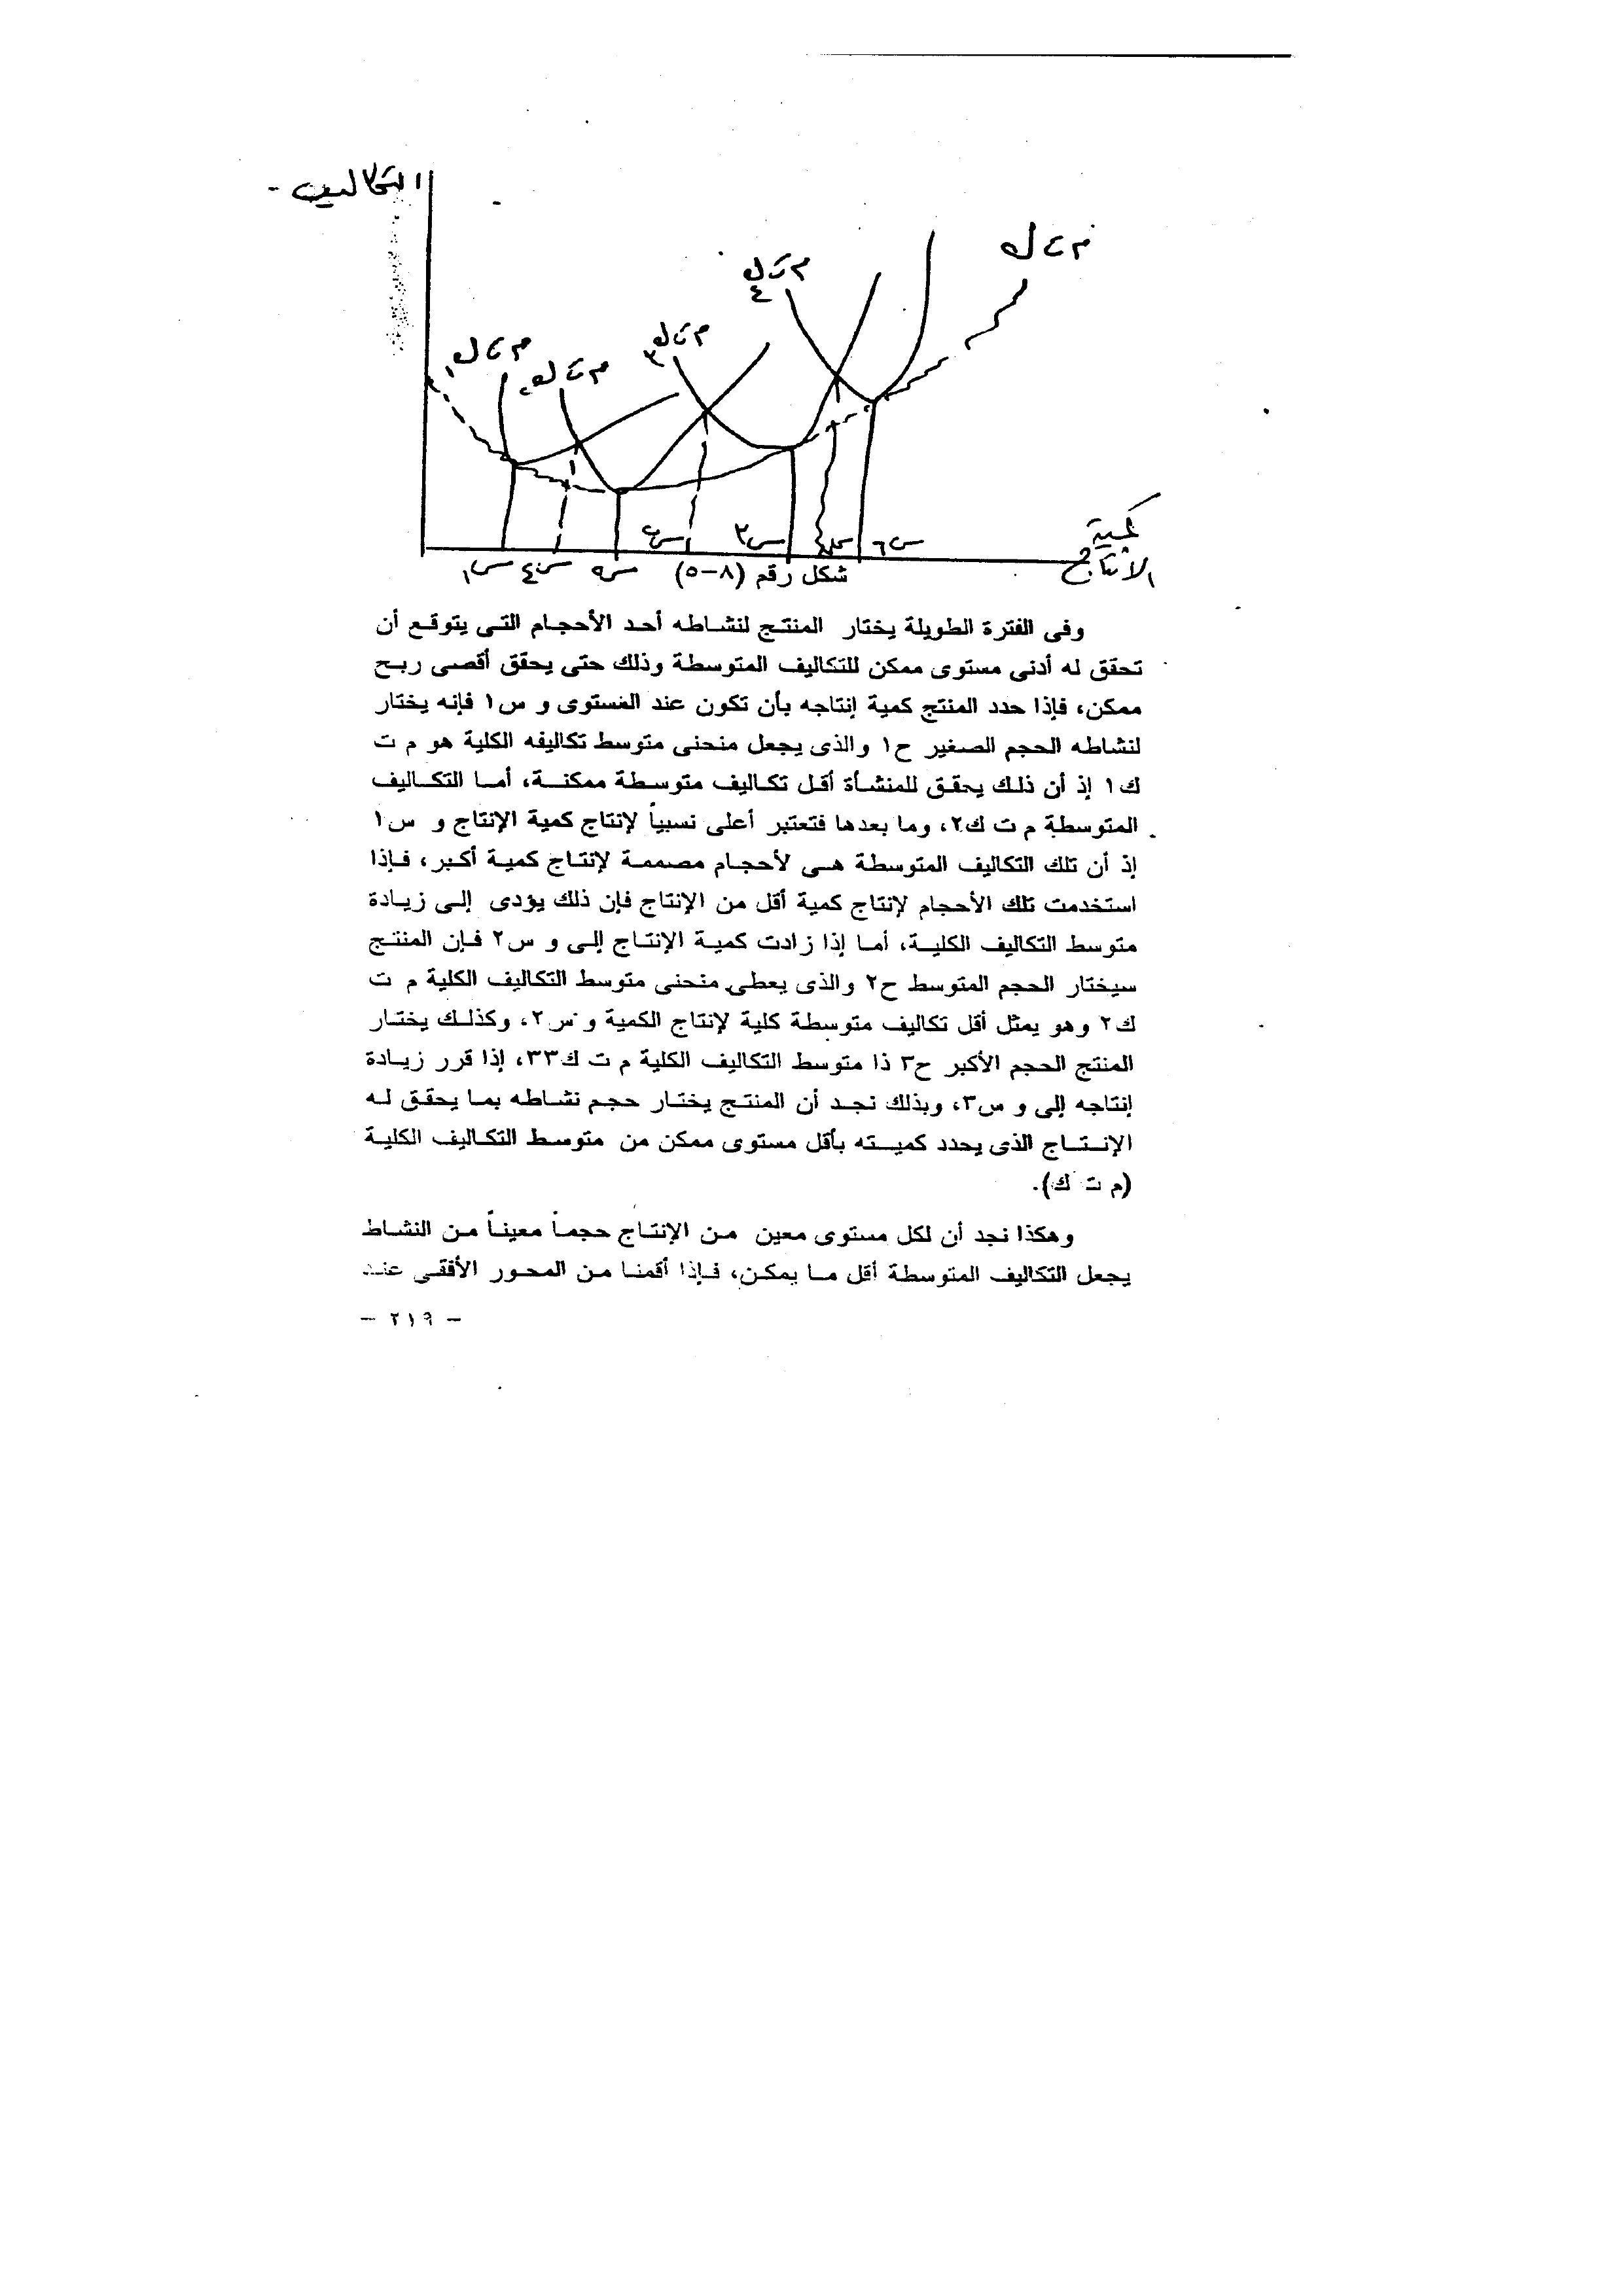 التكاليف -
م ت ك
م ت ك ٤
م ت ك ٣
م ت ك ١
م ت ك
كمية
الانتاج
س٣
س٦
س١
س٤
شكل رقم (٨-٥)
وفى الفترة الطويلة يختار المنتج لنشاطه أحد الأحجام التى يتوقع أن
تحقق له أدنى مستوى ممكن للتكاليف المتوسطة وذلك حتى يحقق أقصى ربح
ممكن، فإذا حدد المنتج كمية إنتاجه بأن تكون عند المستوى و س١ فإنه يختار
لنشاطه الحجم الصغير ح١ والذى يجعل منحنى متوسط تكاليفه الكلية هو م ت
ك١ إذ أن ذلك يحقق للمنشأة أقل تكاليف متوسطة ممكنة، أما التكاليف
المتوسطة م ت ك٢، وما بعدها فتعتبر أعلى نسبياً لإنتاج كمية الإنتاج و س١
إذ أن تلك التكاليف المتوسطة هى لأحجام مصممة لإنتاج كمية أكبر، فإذا
استخدمت تلك الأحجام لإنتاج كمية أقل من الإنتاج فإن ذلك يؤدى إلى زيادة
متوسط التكاليف الكلية، أما إذا زادت كمية الإنتاج إلى و س٢ فإن المنتج
سيختار الحجم المتوسط ح٢ والذى يعطى منحنى متوسط التكاليف الكلية م ت
ك٢ وهو يمثل أقل تكاليف متوسطة كلية لإنتاج الكمية و س٢، وكذلك يختار
المنتج الحجم الأكبر ح٣ ذا متوسط التكاليف الكلية م ت ك٣٣، إذا قرر زيادة
إنتاجه إلى و س٣، وبذلك نجد أن المنتج يختار حجم نشاطه بما يحقق له
الإنتاج الذى يحدد كميته بأقل مستوى ممكن من متوسط التكاليف الكلية
(م ت ك).
وهكذا نجد أن لكل مستوى معين من الإنتاج حجماً معيناً من النشاط
يجعل التكاليف المتوسطة أقل ما يمكن، فإذا أقمنا من المحور الأفقى عند
- ٢١٩ -